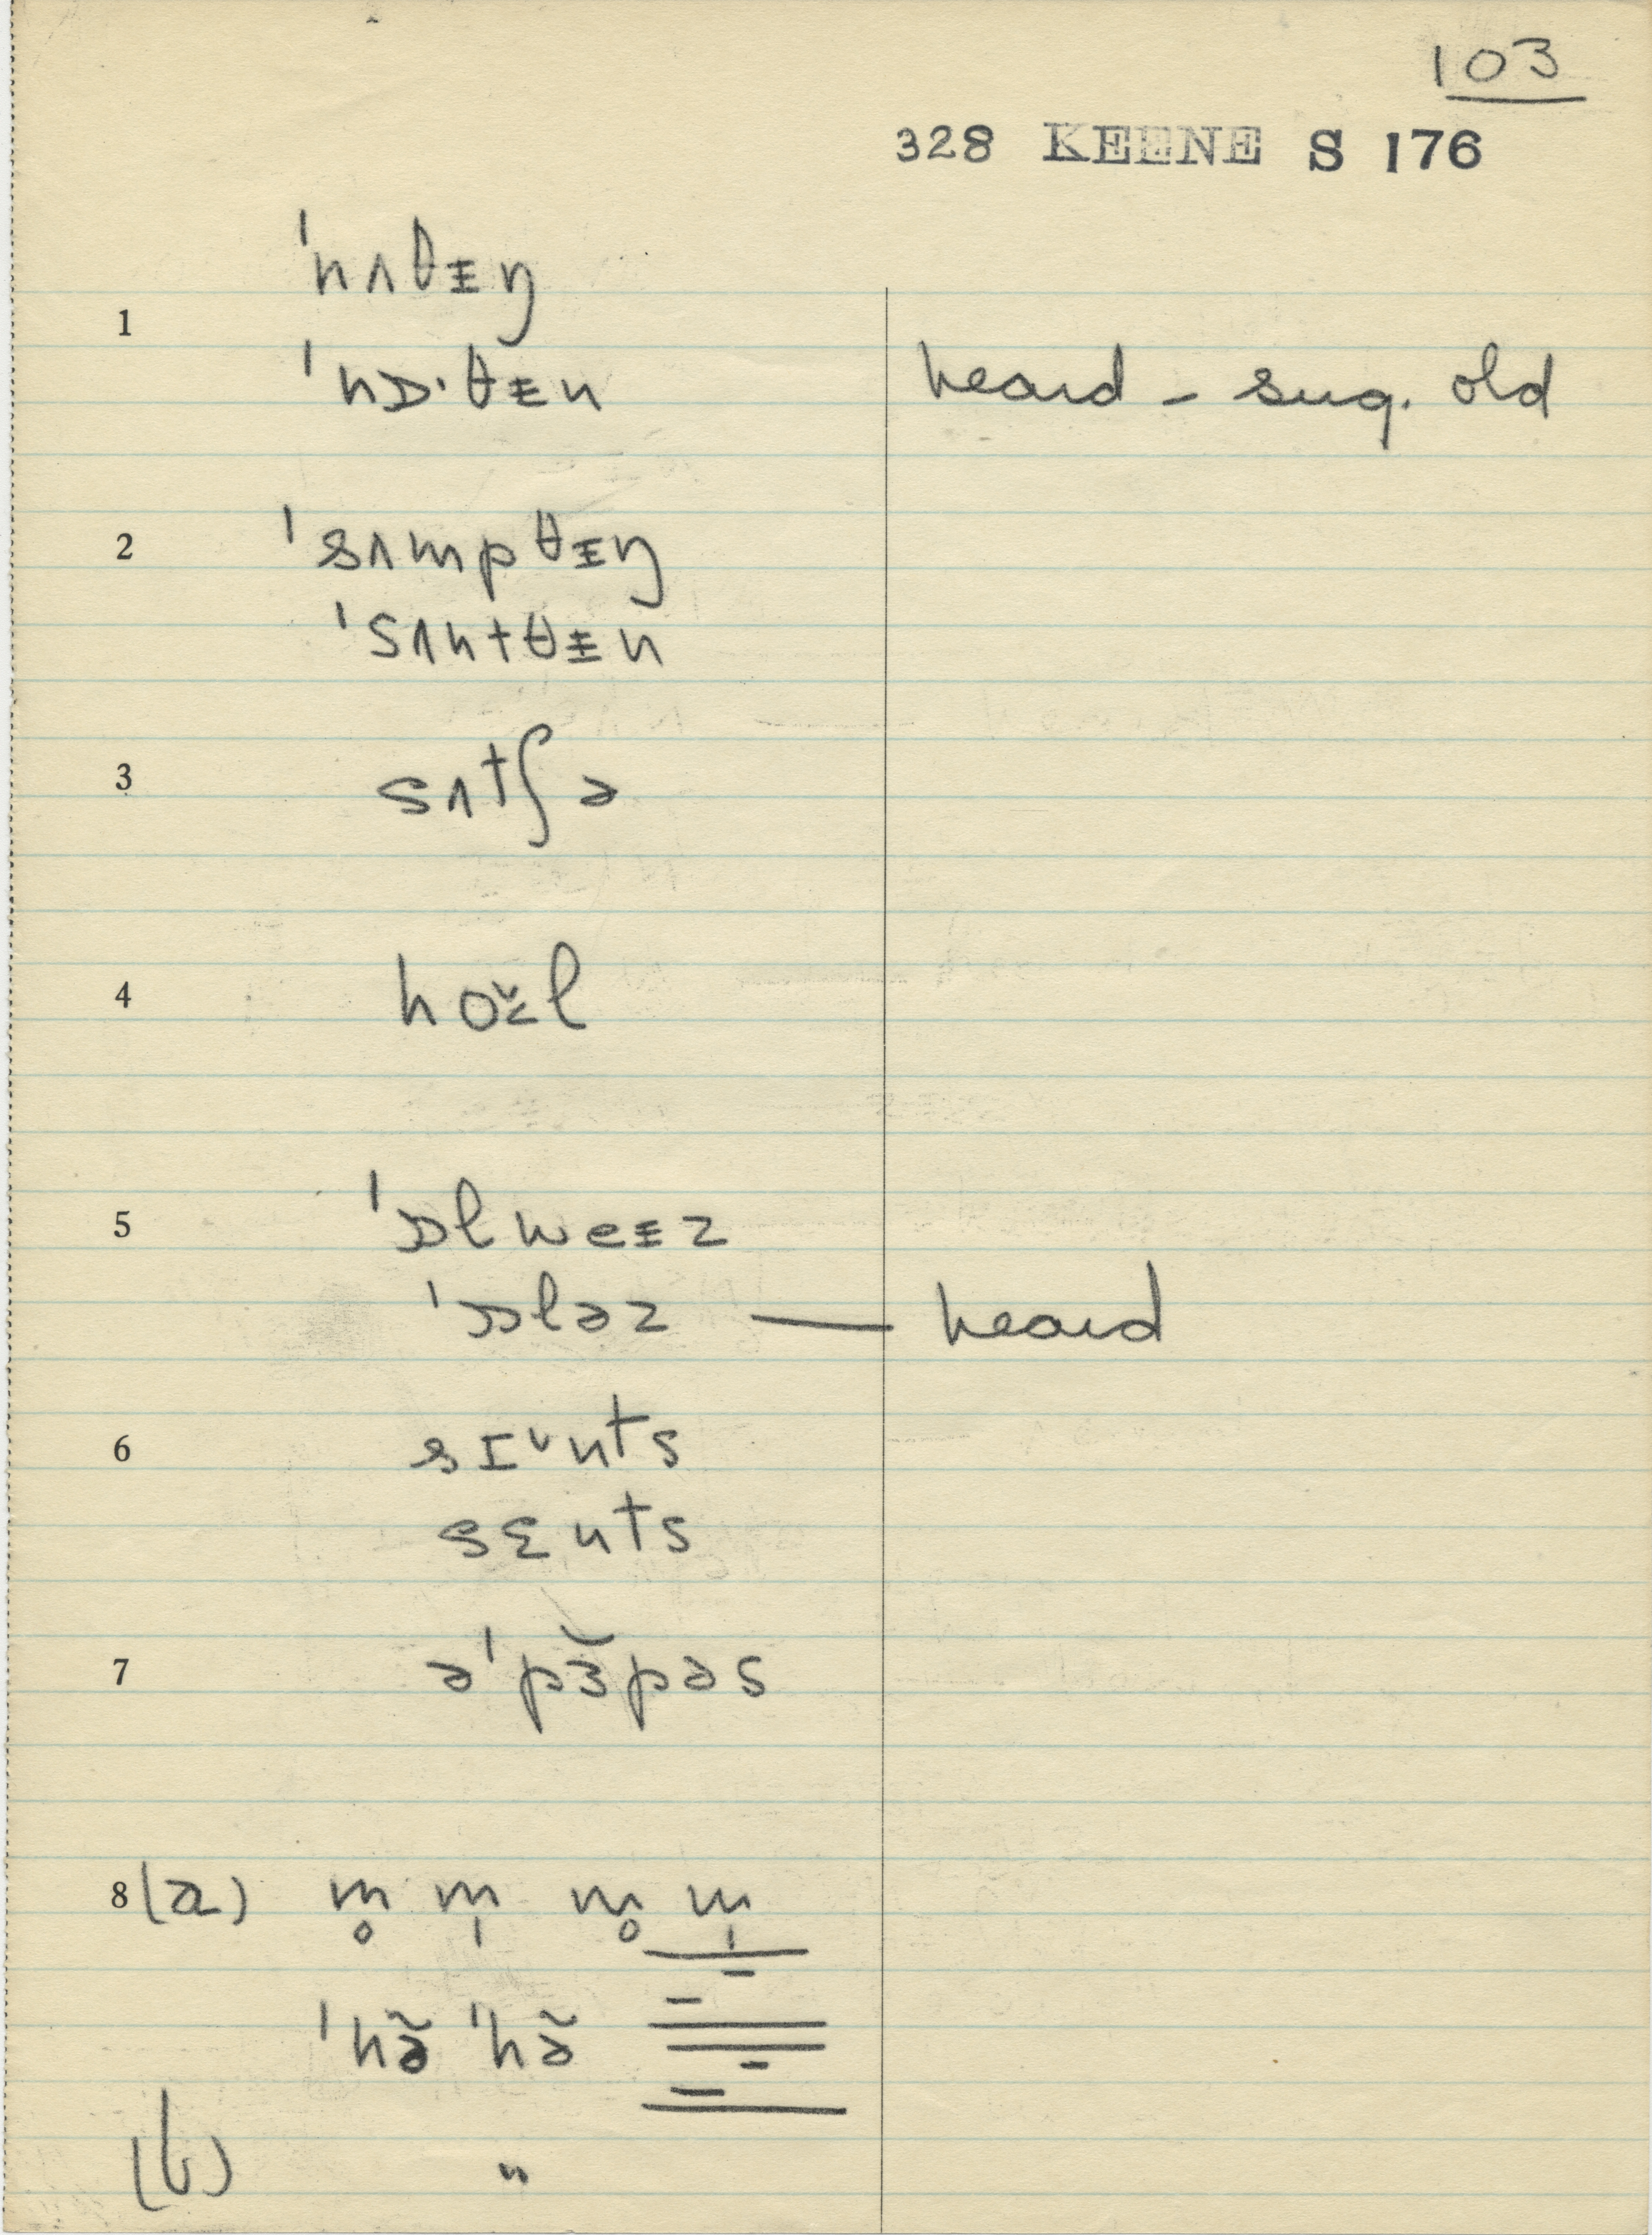 103
328 KEENE S 176
1 ˈnʌθᵻŋ
ˈnɒ·θᵻn heard – sug. old
2 ˈsʌmpθᵻŋ
ˈsʌntθᵻn
3 sʌtʃə
4 hoɤ̌l
5 ˈɒlweᵻz
ˈɒləz — heard
6 sɪˇnts
sɛnts
7 əˈpɜ̆pəs
8 (a) m̥ m̩ m̥ m̩
ˈhə̃ ˈhə̃
(b) "